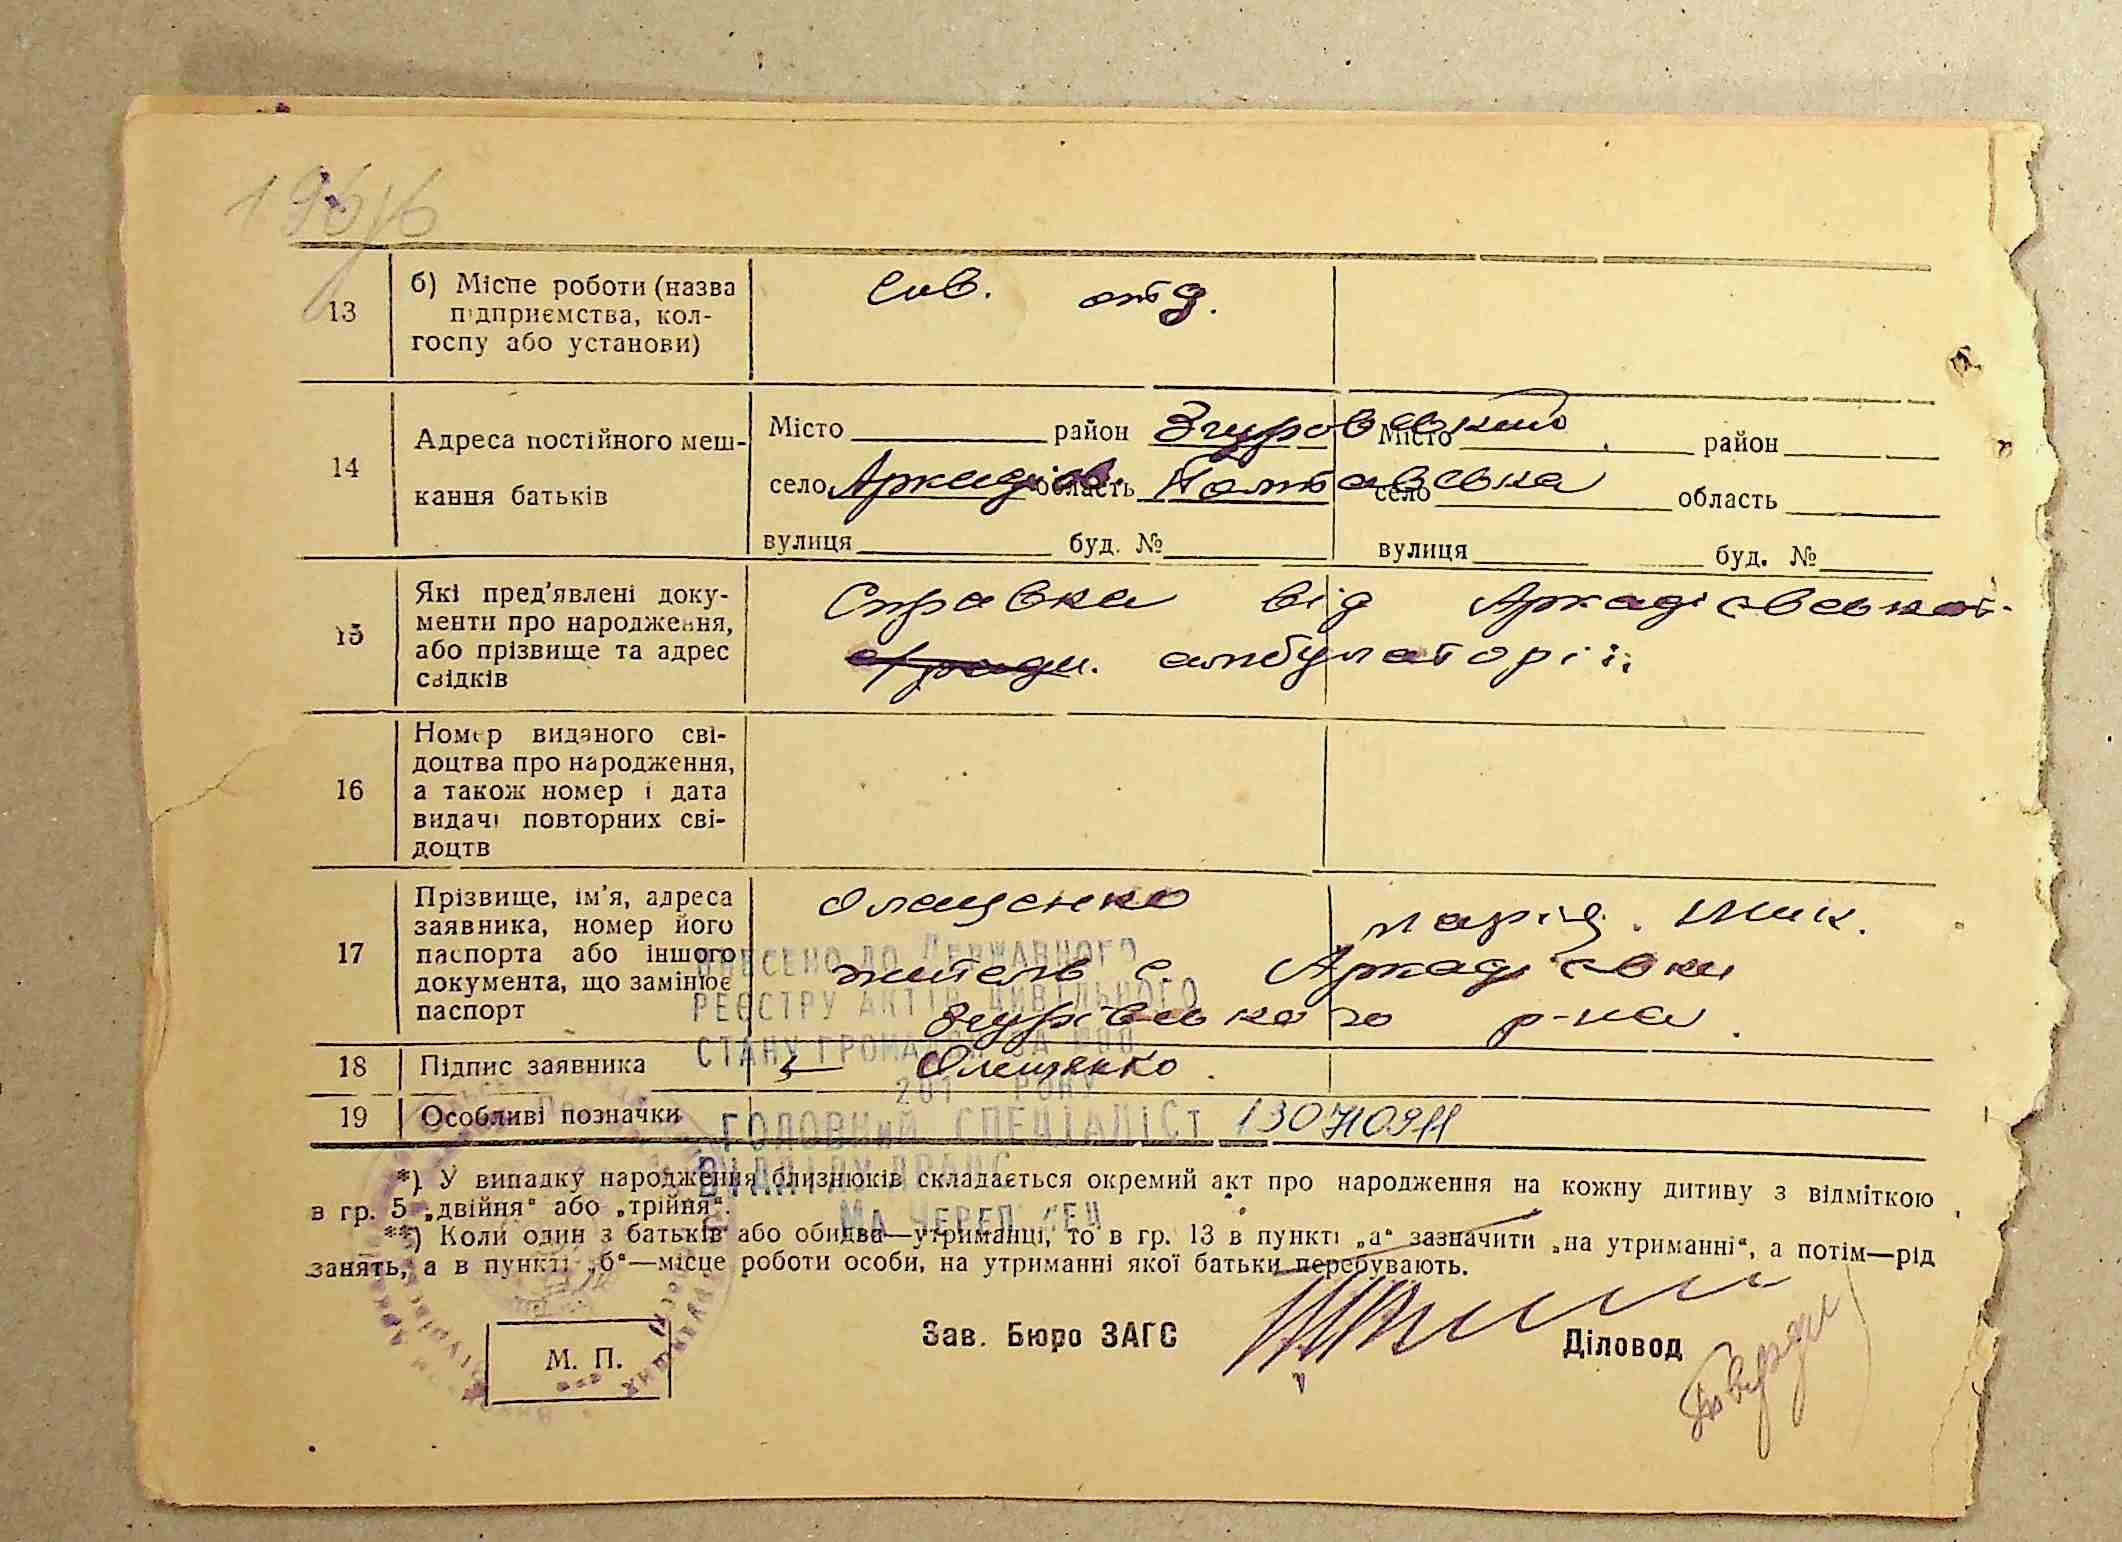 13
б) Місце роботи (назва
підприємства, кол-
госпу або установи)
отд.
14
Адреса постійного меш-
кання батьків
Місто район Згуровський Місто район
село Аркадіїв. область Полтавська село область
вулиця буд. № вулиця буд. №
15
Які пред'явлені доку-
менти про народження,
або прізвище та адрес
свідків
Справка від Аркадієвської
амбулаторії
16
Номер виданого сві-
доцтва про народження,
а також номер і дата
видачі повторних сві-
доцтв
17
Прізвище, ім'я, адреса
заявника, номер його
паспорта або іншого
документа, що замінює
паспорт
Олещенко Марія. Мик.
житель с. Аркадієвки
Згурівського р-на.
ВНЕСЕНО ДО ДЕРЖАВНОГО
РЕЄСТРУ АКТІВ ЦИВІЛЬНОГО
СТАНУ ГРОМАДЯН ЗА №00
201 РОКУ
ГОЛОВНИЙ СПЕЦІАЛІСТ 130710911
ВІДДІЛУ ДРАЦС
18 Підпис заявника Олещенко.
19 Особливі позначки
*) У випадку народження близнюків складається окремий акт про народження на кожну дитину з відміткою
в гр. 5 „двійня“ або „трійня“.
**) Коли один з батьків або обидва—утриманці, то в гр. 13 в пункті „а“ зазначити „на утриманні“, а потім—рід
занять, а в пункті „б“—місце роботи особи, на утриманні якої батьки перебувають.
Зав. Бюро ЗАГС Діловод
М. П.